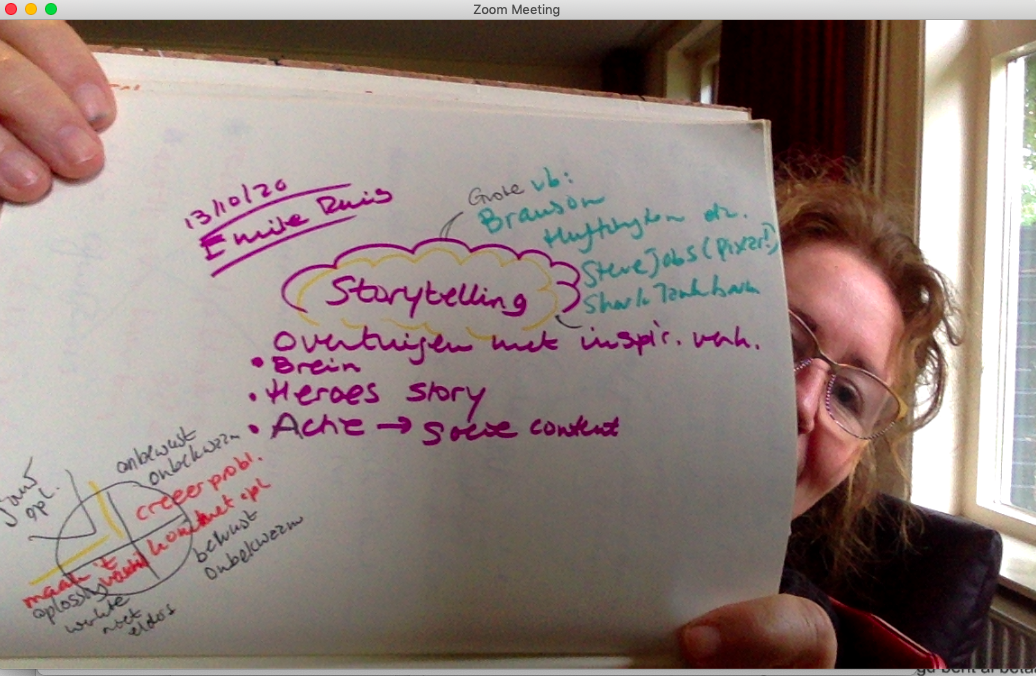 Zoom Meeting
13/10/20
Emile Ruis
Grote vb:
Branson
Huffington etc.
Steve Jobs (Pixar!)
Shark Tank
Storytelling
Overtuigen met inspir. verh.
• Brein
• Heroes story
• Actie → goeie content
onbewust
onbekwaam
creeer probl.
kom met opl
bewust
onbekwaam
jouw
opl.
maak 't
oplossing
werkte
niet